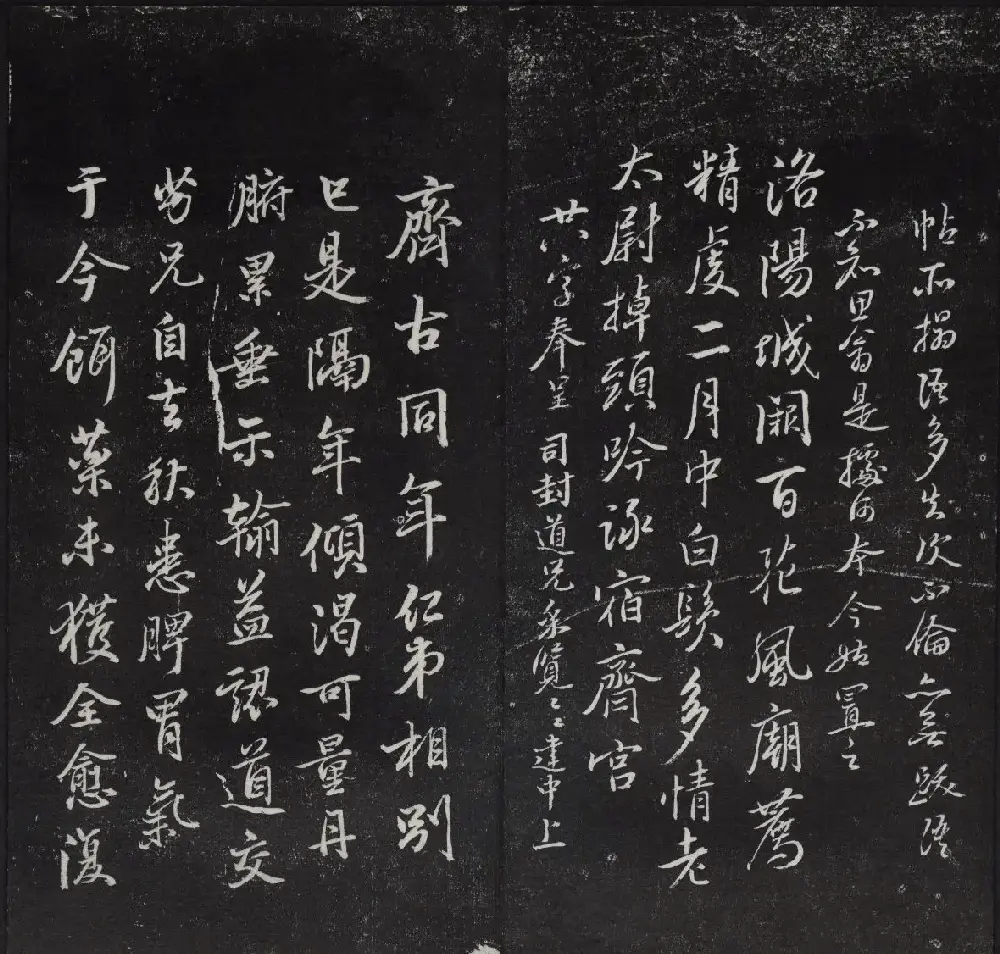 帖不搨語多失次不倫亦無跋語
不知思翁是據何本今姑置之
洛陽城闕百花風廟薦
精虔二月中白鬚多情老
太尉掉頭吟詠宿齋宮
廿八字奉呈司封道兄采覽〻建中上
齊古同年仁弟相別
已是隔年傾渴可量丹
腑累垂示翰益認道交
勞兄自去秋患脾胃氣
于今餌藥未獲全愈復